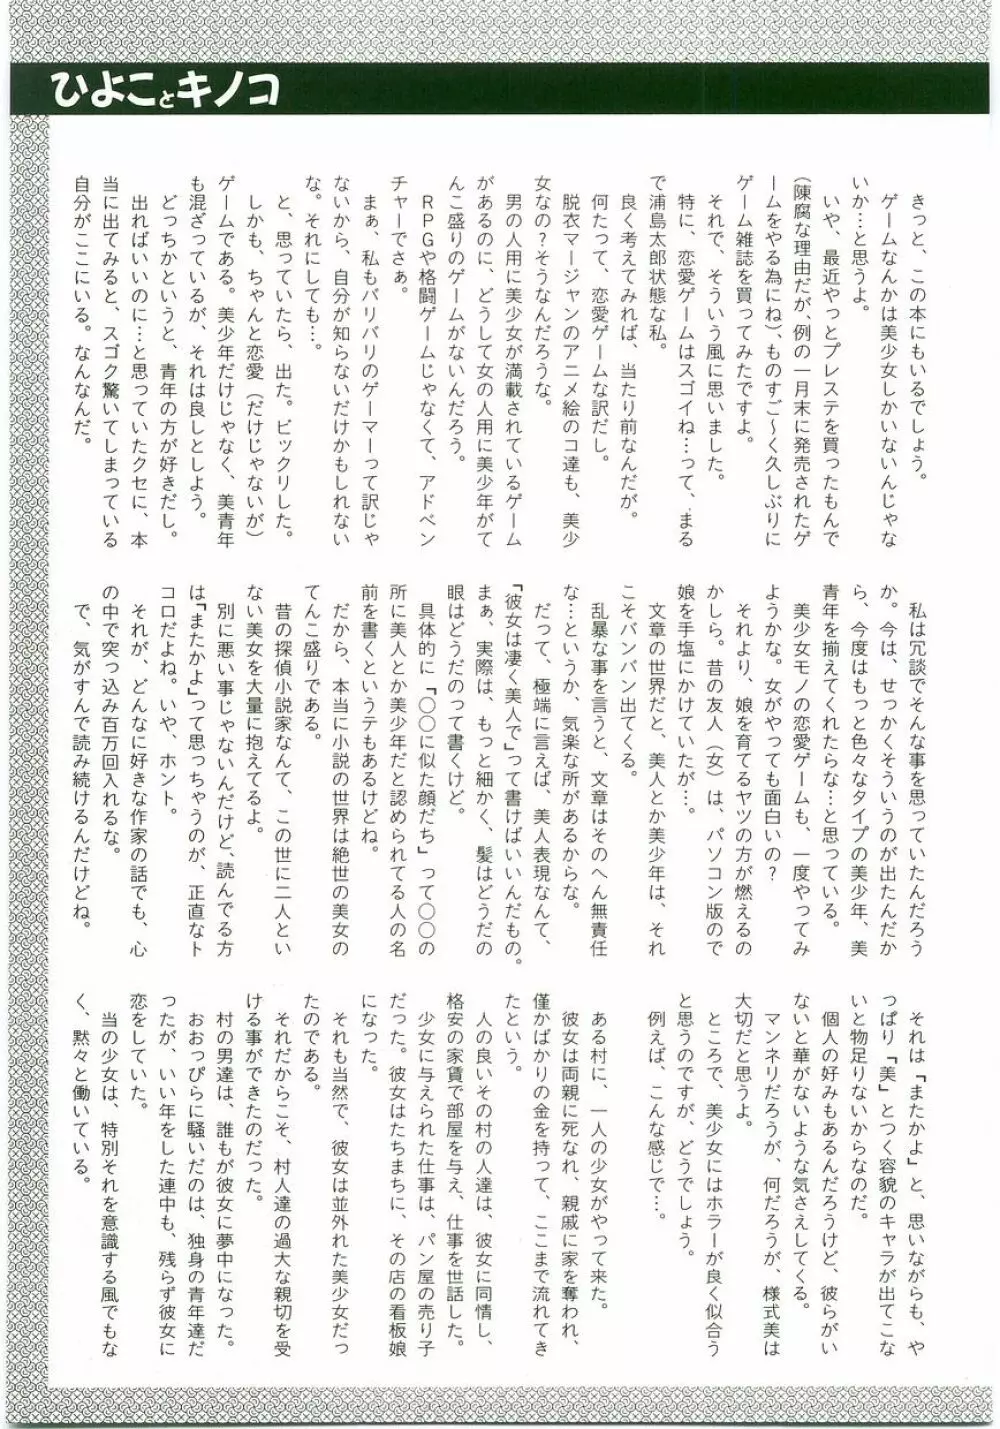 ひよことキノコ
きっと、この本にもいるでしょう。
ゲームなんかは美少女しかいないんじゃな
いか…と思うよ。
いや、最近やっとプレステを買ったもんで
(陳腐な理由だが、例の一月末に発売されたゲ
ームをやる為にね)、ものすご〜く久しぶりに
ゲーム雑誌を買ってみたですよ。
それで、そういう風に思いました。
特に、恋愛ゲームはスゴイね…って、まる
で浦島太郎状態な私。
良く考えてみれば、当たり前なんだが。
何たって、恋愛ゲームな訳だし。
脱衣マージャンのアニメ絵のコ達も、美少
女なの?そうなんだろうな。
男の人用に美少女が満載されているゲーム
があるのに、どうして女の人用に美少年がて
んこ盛りのゲームがないんだろう。
RPGや格闘ゲームじゃなくて、アドベン
チャーでさぁ。
まぁ、私もバリバリのゲーマーって訳じゃ
ないから、自分が知らないだけかもしれない
な。それにしても…。
と、思っていたら、出た。ビックリした。
しかも、ちゃんと恋愛(だけじゃないが)
ゲームである。美少年だけじゃなく、美青年
も混ざっているが、それは良しとしよう。
どっちかというと、青年の方が好きだし。
出ればいいのに…と思っていたクセに、本
当に出てみると、スゴク驚いてしまっている
自分がここにいる。なんなんだ。
私は冗談でそんな事を思っていたんだろう
か。今は、せっかくそういうのが出たんだか
ら、今度はもっと色々なタイプの美少年、美
青年を揃えてくれたらな…と思っている。
美少女モノの恋愛ゲームも、一度やってみ
ようかな。女がやっても面白いの?
それより、娘を育てるヤツの方が燃えるの
かしら。昔の友人(女)は、パソコン版ので
娘を手塩にかけていたが…。
文章の世界だと、美人とか美少年は、それ
こそバンバン出てくる。
乱暴な事を言うと、文章はそのへん無責任
な…というか、気楽な所があるからな。
だって、極端に言えば、美人表現なんて、
「彼女は凄く美人で」って書けばいいんだもの。
まぁ、実際は、もっと細かく、髪はどうだの
眼はどうだのって書くけど。
具体的に「○○に似た顔だち」って○○の
所に美人とか美少年だと認められてる人の名
前を書くというテもあるけどね。
だから、本当に小説の世界は絶世の美女の
てんこ盛りである。
昔の探偵小説家なんて、この世に二人とい
ない美女を大量に抱えてるよ。
別に悪い事じゃないんだけど、読んでる方
は「またかよ」って思っちゃうのが、正直なト
コロだよね。いや、ホント。
それが、どんなに好きな作家の話でも、心
の中で突っ込み百万回入れるな。
で、気がすんで読み続けるんだけどね。
それは「またかよ」と、思いながらも、や
っぱり「美」とつく容貌のキャラが出てこな
いと物足りないからなのだ。
個人の好みもあるんだろうけど、彼らがい
ないと華がないような気さえしてくる。
マンネリだろうが、何だろうが、様式美は
大切だと思うよ。
ところで、美少女にはホラーが良く似合う
と思うのですが、どうでしょう。
例えば、こんな感じで…。
ある村に、一人の少女がやって来た。
彼女は両親に死なれ、親戚に家を奪われ、
僅かばかりの金を持って、ここまで流れてき
たという。
人の良いその村の人達は、彼女に同情し、
格安の家賃で部屋を与え、仕事を世話した。
少女に与えられた仕事は、パン屋の売り子
だった。彼女はたちまちに、その店の看板娘
になった。
それも当然で、彼女は並外れた美少女だっ
たのである。
それだからこそ、村人達の過大な親切を受
ける事ができたのだった。
村の男達は、誰もが彼女に夢中になった。
おおっぴらに騒いだのは、独身の青年達だ
ったが、いい年をした連中も、残らず彼女に
恋をしていた。
当の少女は、特別それを意識する風でもな
く、黙々と働いている。